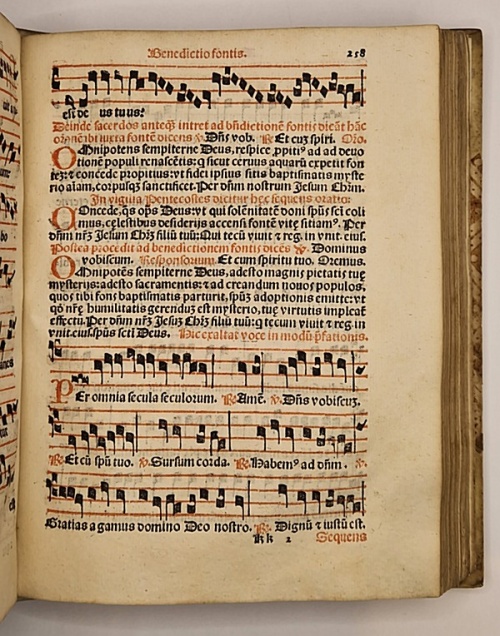 Benedictio fontis. 258
est de us tuus:
Deinde sacerdos anteq̃ intret ad bñdictionē fontis dicat hāc
orōnē ibi iuxta fontē dicens ℣. Dñs vob. ℟. Et cuȝ spiri. Oro.
OMnipotens sempiterne Deus, respice ꝓpitiꝰ ad ad deuo
tionē populi renascētis: q sicut ceruus aquarū expetit fon
tez: ⁊ concede propitius: vt fidei ipsius sitis baptismatis myste
rio aīam, corpusqȝ sanctificet. Per dñm nostrum Jesum Chrm.
In vigilia Pentecostes dicitur hec sequens oratio:
COncede, q̄s op̄s Deus: vt qui solēnitatē doni spūs sc̄i coli
mus, cęlestibus desiderijs accensi fontē vitę sitiamꝰ. Per
dñm nr̄ȝ Jesum Chr̄ȝ filiū tuū: Qui tecū viuit ⁊ reg. in vnit. eius.
Postea procedit ad benedictionem fontis dicēs ℣. Dominus
vobiscum. Responsorium. Et cum spiritu tuo. Oremus.
OMnipotēs sempiterne Deus, adesto magnis pietatis tuę
mysterijs: adesto sacramentis: ⁊ ad creandum nouos populos,
quos tibi fons baptismatis parturit, spūȝ adoptionis emitte: vt
qō nr̄ę humilitatis gerendum est mysterio, tuę virtutis impleat̄
effectu. Per dñm nr̄ȝ Jesuȝ Chr̄ȝ filiū tuū: q tecum viuit ⁊ reg. in
vnit. eius. spūs sctī Deus. Hic exaltat voce in modū p̄fationis.
PEr omnia secula seculorum. ℟. Amē. ℣. Dñs vobiscuȝ.
℟. Et cū spū tuo. ℣. Sursum corda. ℟. Habemꝰ ad dñm. ℣.
Gratias agamus domino Deo nostro. ℟. Dignū ⁊ iustū est.
Kk 2 Sequens